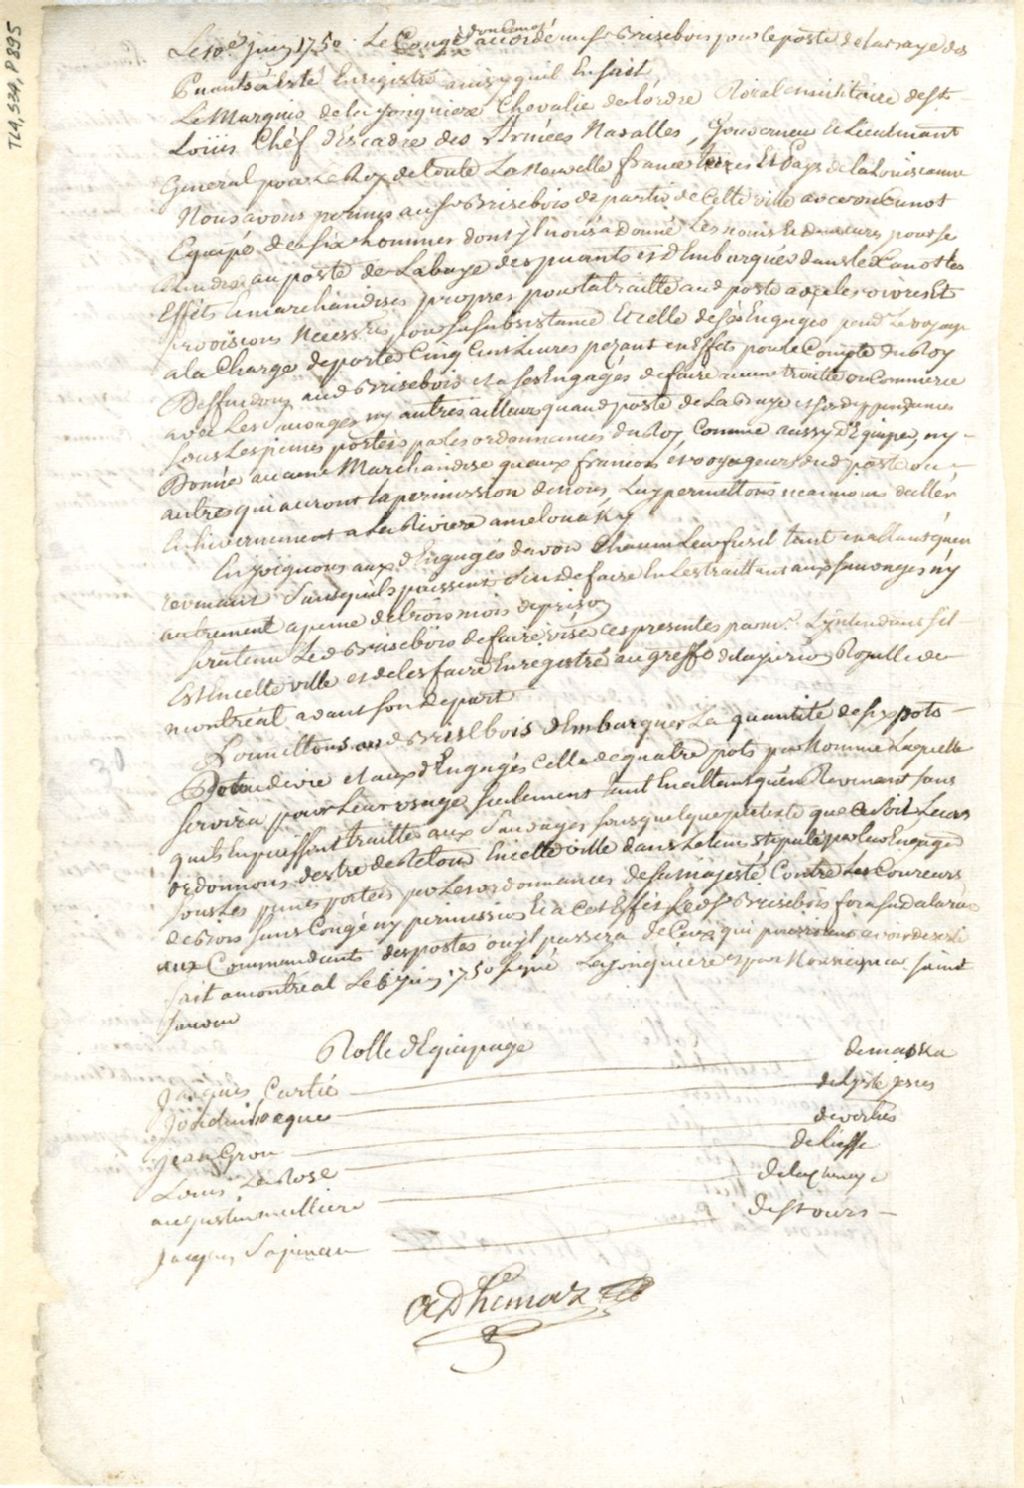 TL4, S34, P895
Le 10e juin 1750. Le Congé d'un Canot accordé au Sr Brisebois pour le poste de la Baye des
Puants a Esté Enregistré ainsy quil En suit,
Le Marquis de la Jonquiere Chevalie de l'ordre Roial & militaire de St
Loüis Chéf d'escadre des Armées Navalles, Gouverneur & Lieutenant
General pour Le Roy de toute La Nouvelle france terres Et Pays de la Louisianne
Nous avons permis au Sr Brisebois de partir de Cette ville avec un Canot
Equipé de six hommes dont yl nous a donné Les noms Et demeures pour se
Rendre au poste de Labaye des puants et d'Embarquer dans led Canot les
Effets & marchandises propres pour la traitte aud poste avec les vivres Et
provisions Necessres pour sa subsistance Et celle de ses Engagés pendt Le voyage
a la Charge de porter Cinq Cent Livres pezant en effets pour le Compte du Roy
Deffendons aud Brisebois et a ses Engagés de faire aucune traitte ou Commerce
avec Les Sauvages ny autres ailleurs quaud poste de La Baye et ses deppendances
sous Les peines portées par Les ordonnances du Roy, Comme aussy d'Equiper, ny
Donné aucune Marchandise quaux francois et voyageurs dud poste ou
autres qui auront la permission de nous, Luy permettons neanmoins daller
En hivernement a La Riviere
Enjoignons auxd Engagés davoir Chacun Leur fusil tant en allant quen
revenant Sans quils puissent Sen defaire En Les traittant aux Sauvages ny
autrement a peine de trois mois de prison
Sera tenu Led Brisebois de faire visé Ces presentes par Mr Lyntendant sil
Est En cette ville et de les faire Enregistré au greffe de la jurison Royalle de
montreal avant son depart
Permettons aud Brisebois d'Embarquer La quantité de six pots
D'eau de vie et auxd Engagés Celle de quatre pots par Homme Laquelle
servira pour Leur usage seulement tant En allant quen Revenant sans
quils En puissent traitter aux Sauvages sous quelque pretexte que ce soit Leurs
ordonnons destre de Retour En cette ville dans Le tems stipulé par leur Engagé
sous Les peines portées par Les ordonnances de sa majesté Contre Les Coureurs
de Bois sans Congé ny permission Et a Cet Effet Led Sr Brisebois fera sa declara͞on
aux Commandants des postes ou yl passera de Ceux qui pourroient avoir deserté
fait a montreal Le 6 juin 1750 signé Lajonquiere et par Monseigneur Saint
Sauveur
Rolle d'Equipage
Jacques Cartié — de maska
jodoin — de lysle jesus
jean Grou — de
Louis LaRose — de
augustin — de lachenaye
Jacques — de st ours
Adhemar